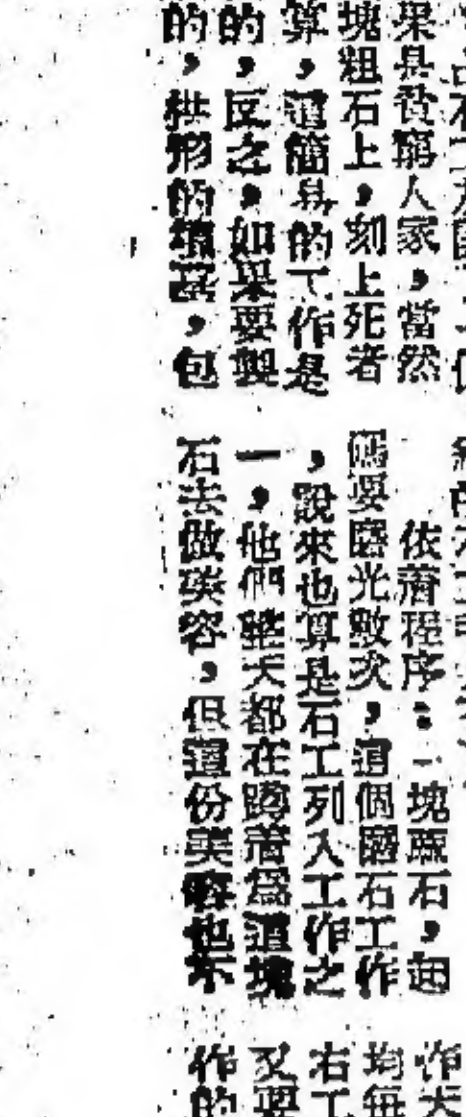 果是貧窮人家，當然
塊粗石上，刻上死者
算，這簡易的工作是
的，反之，如果要製
的，拱形的墳墓，包
依着程序：一塊麻石，起
碼要磨光數次，這個磨石工作
，說來也算是石工列入工作之
一，他們整天都在蹲着為這塊
石去做美容，但這份美容也不
作大
均每
石工
又要
作的